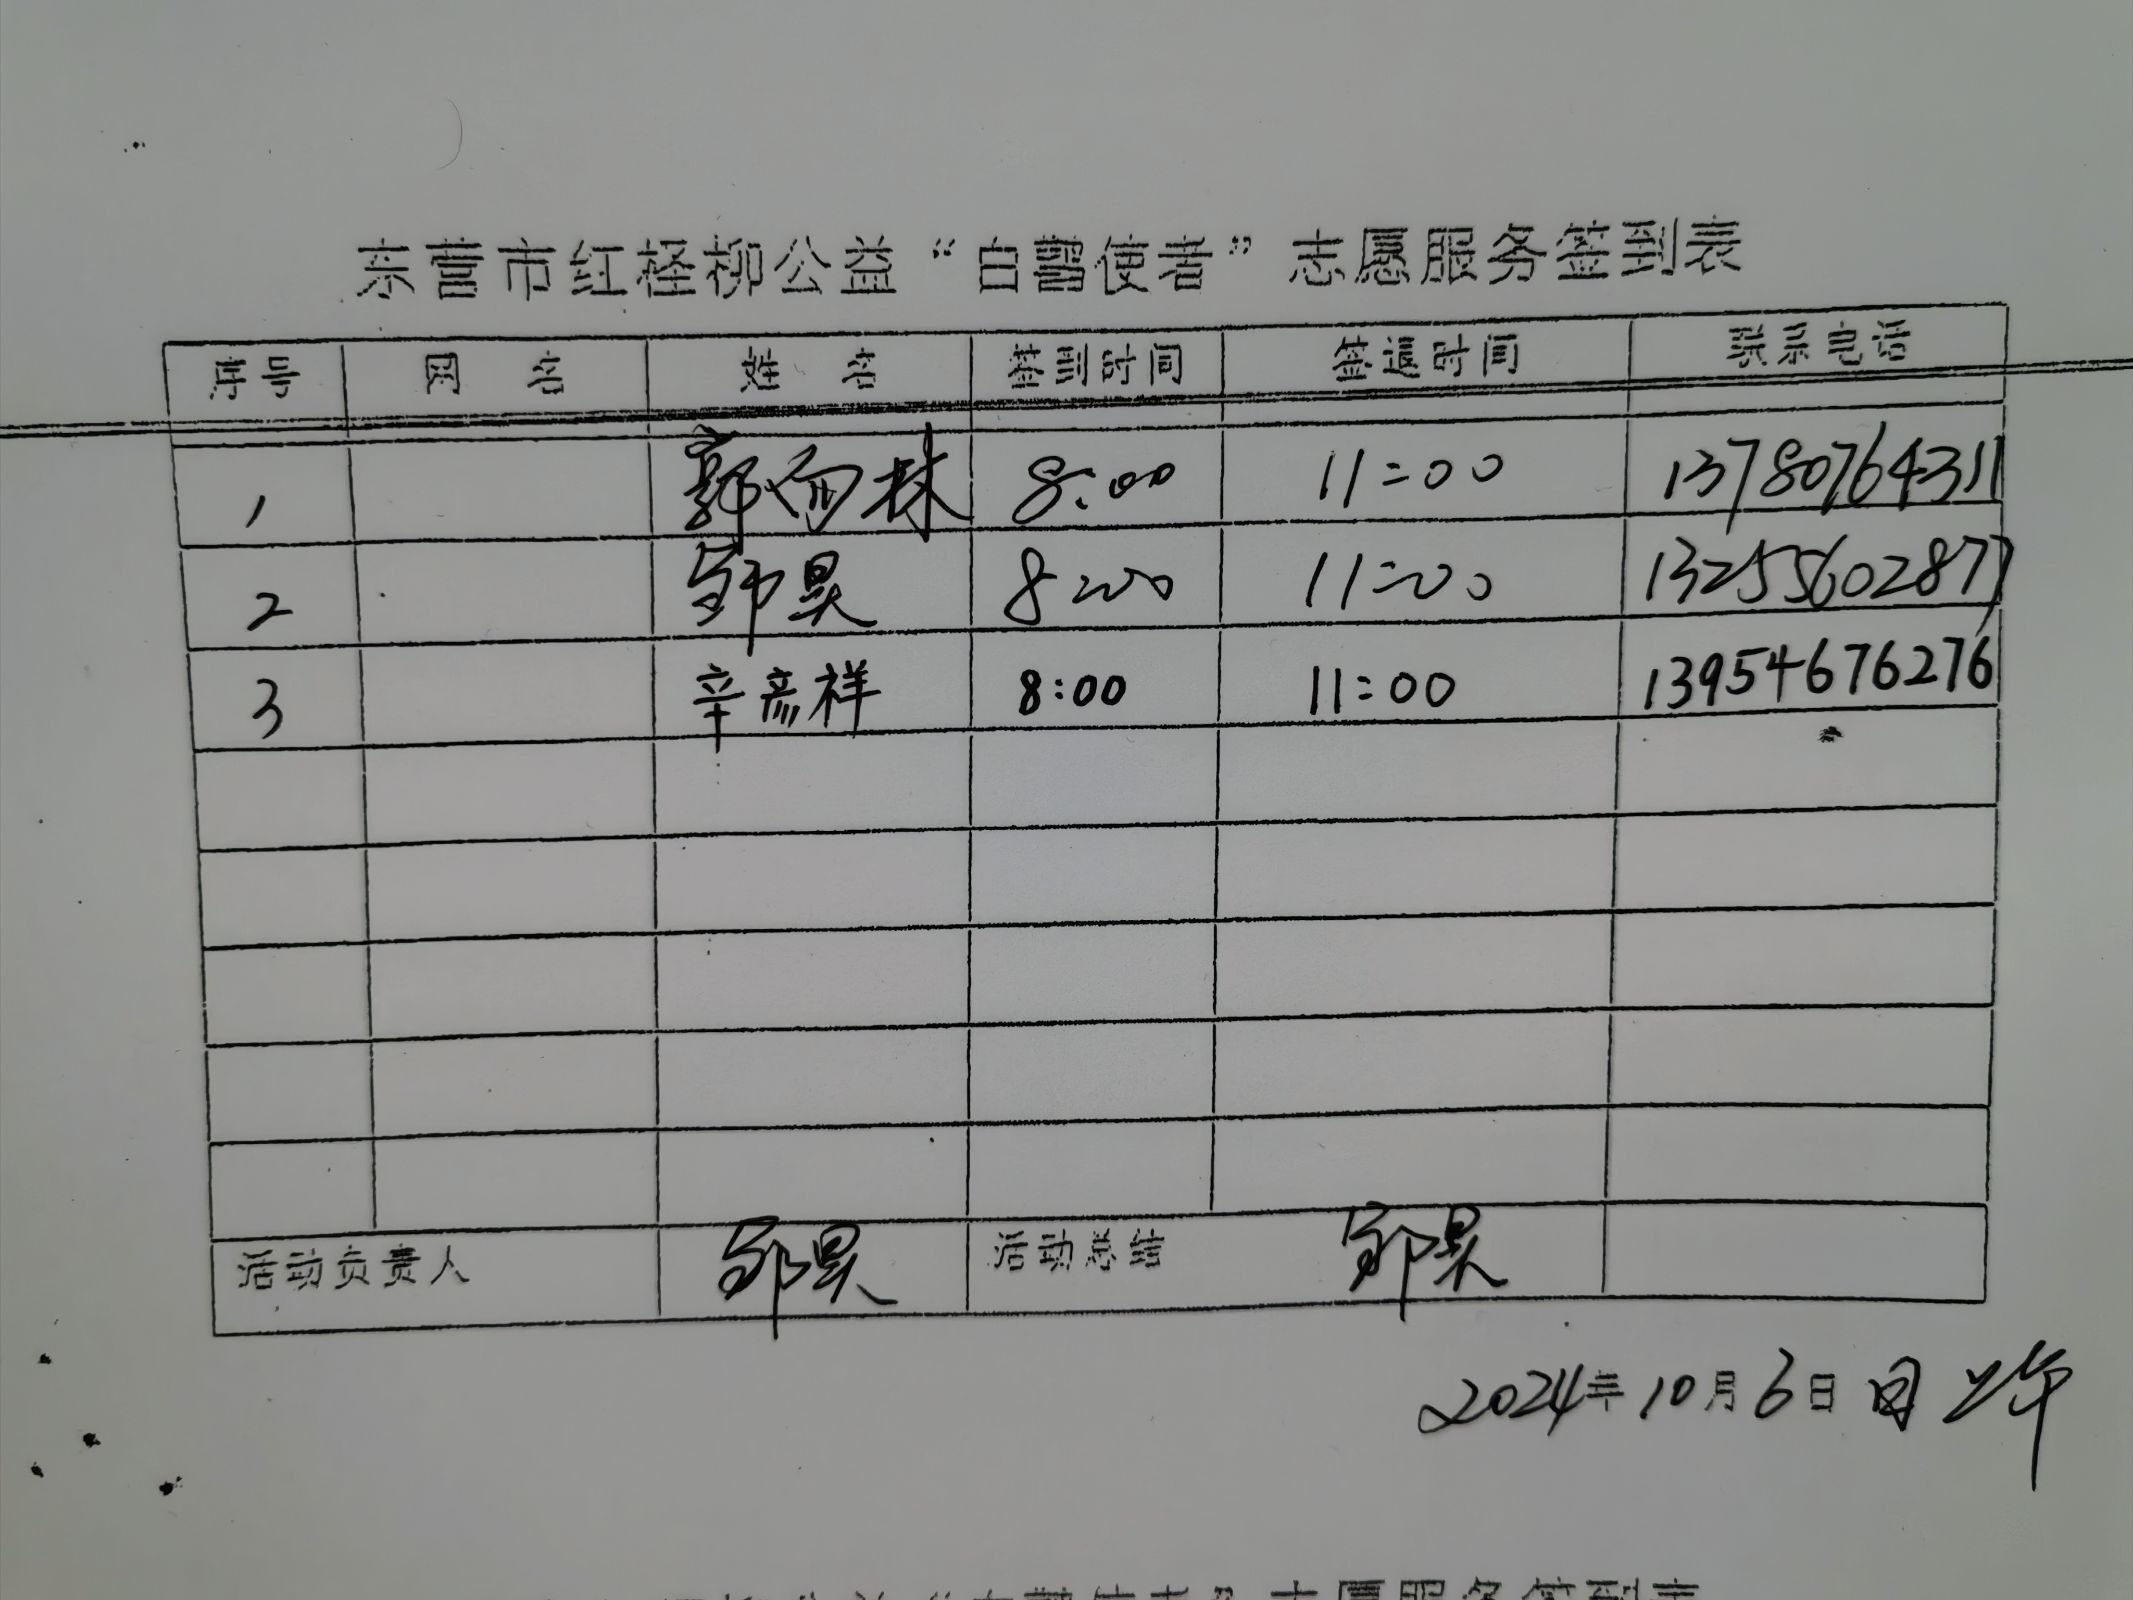 东营市红柽柳公益“白鹭使者”志愿服务签到表
序号 网 名 姓 名 签到时间 签退时间 联系电话
1 郭向林 8:00 11:00 13780764311
2 邹昊 8:00 11:00 13255602877
3 辛彦祥 8:00 11:00 13954676276
活动负责人 邹昊 活动总结 邹昊
2024年10月6日 上午
志愿服务签到表